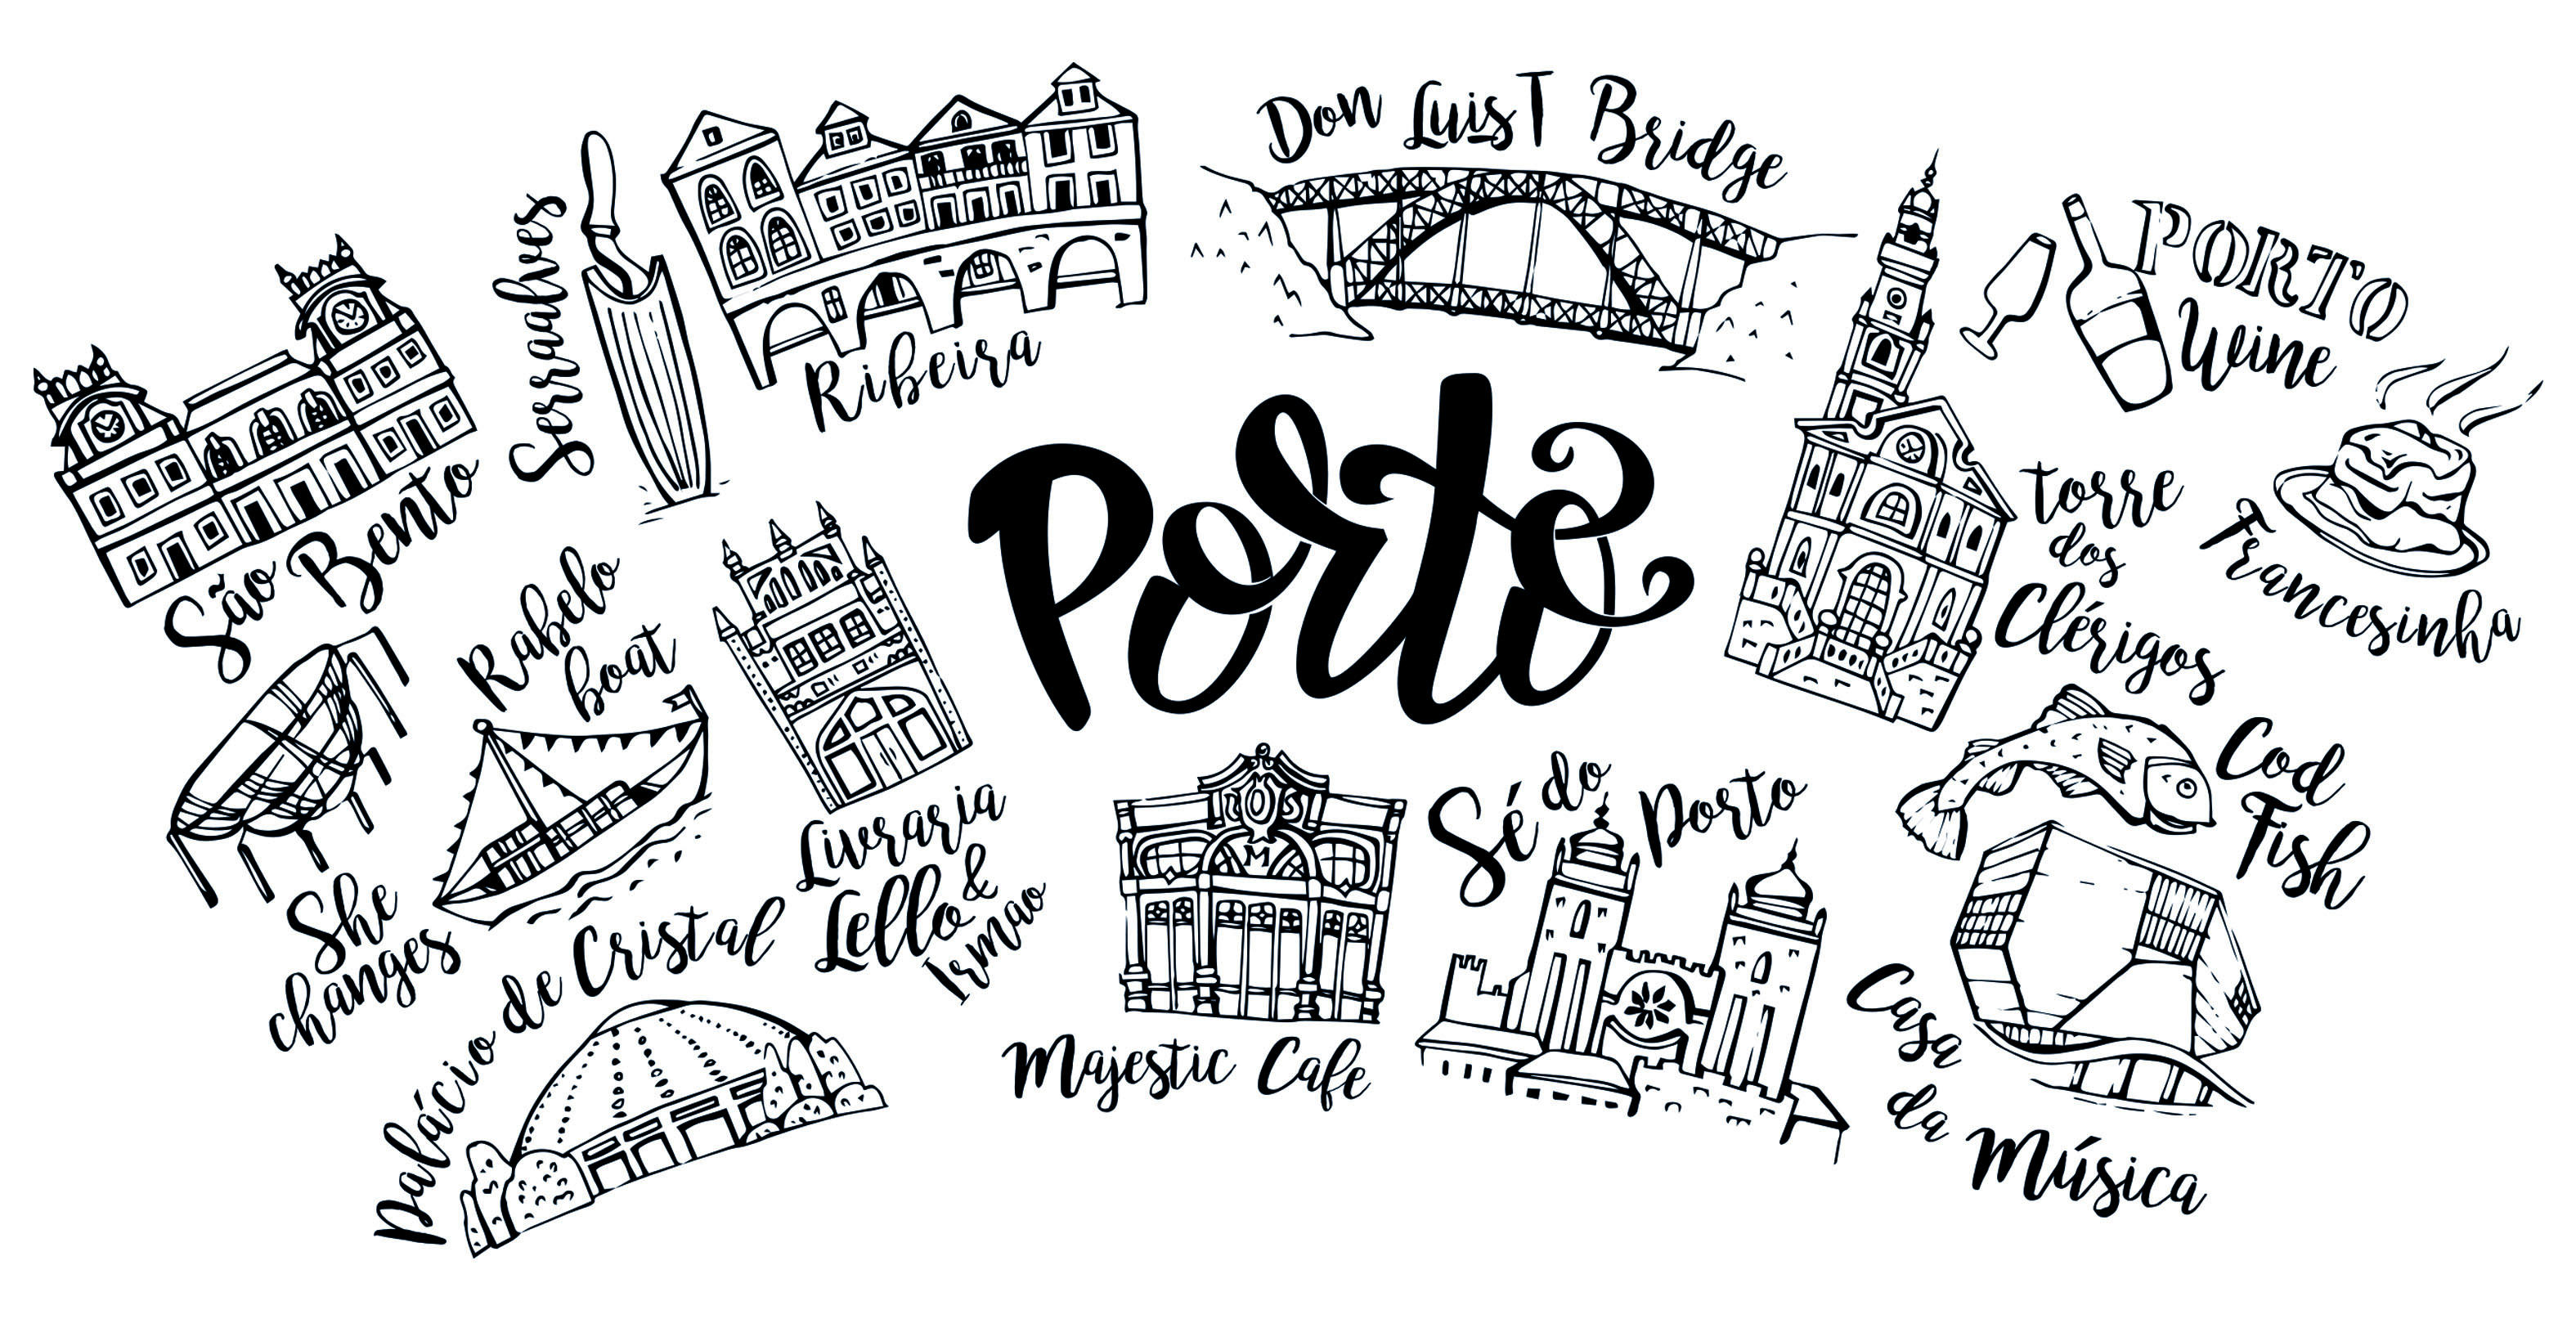 Don Luis I Bridge
Serraalves
Ribeira
PORTO
Wine
São Bento
Porto
torre
dos
Clérigos
Francesinha
Rabelo
boat
She
changes
Livraria
Lello &
Irmao
Sé do Porto
Cod
Fish
M
Majestic Cafe
Palácio de Cristal
Casa
da
Música